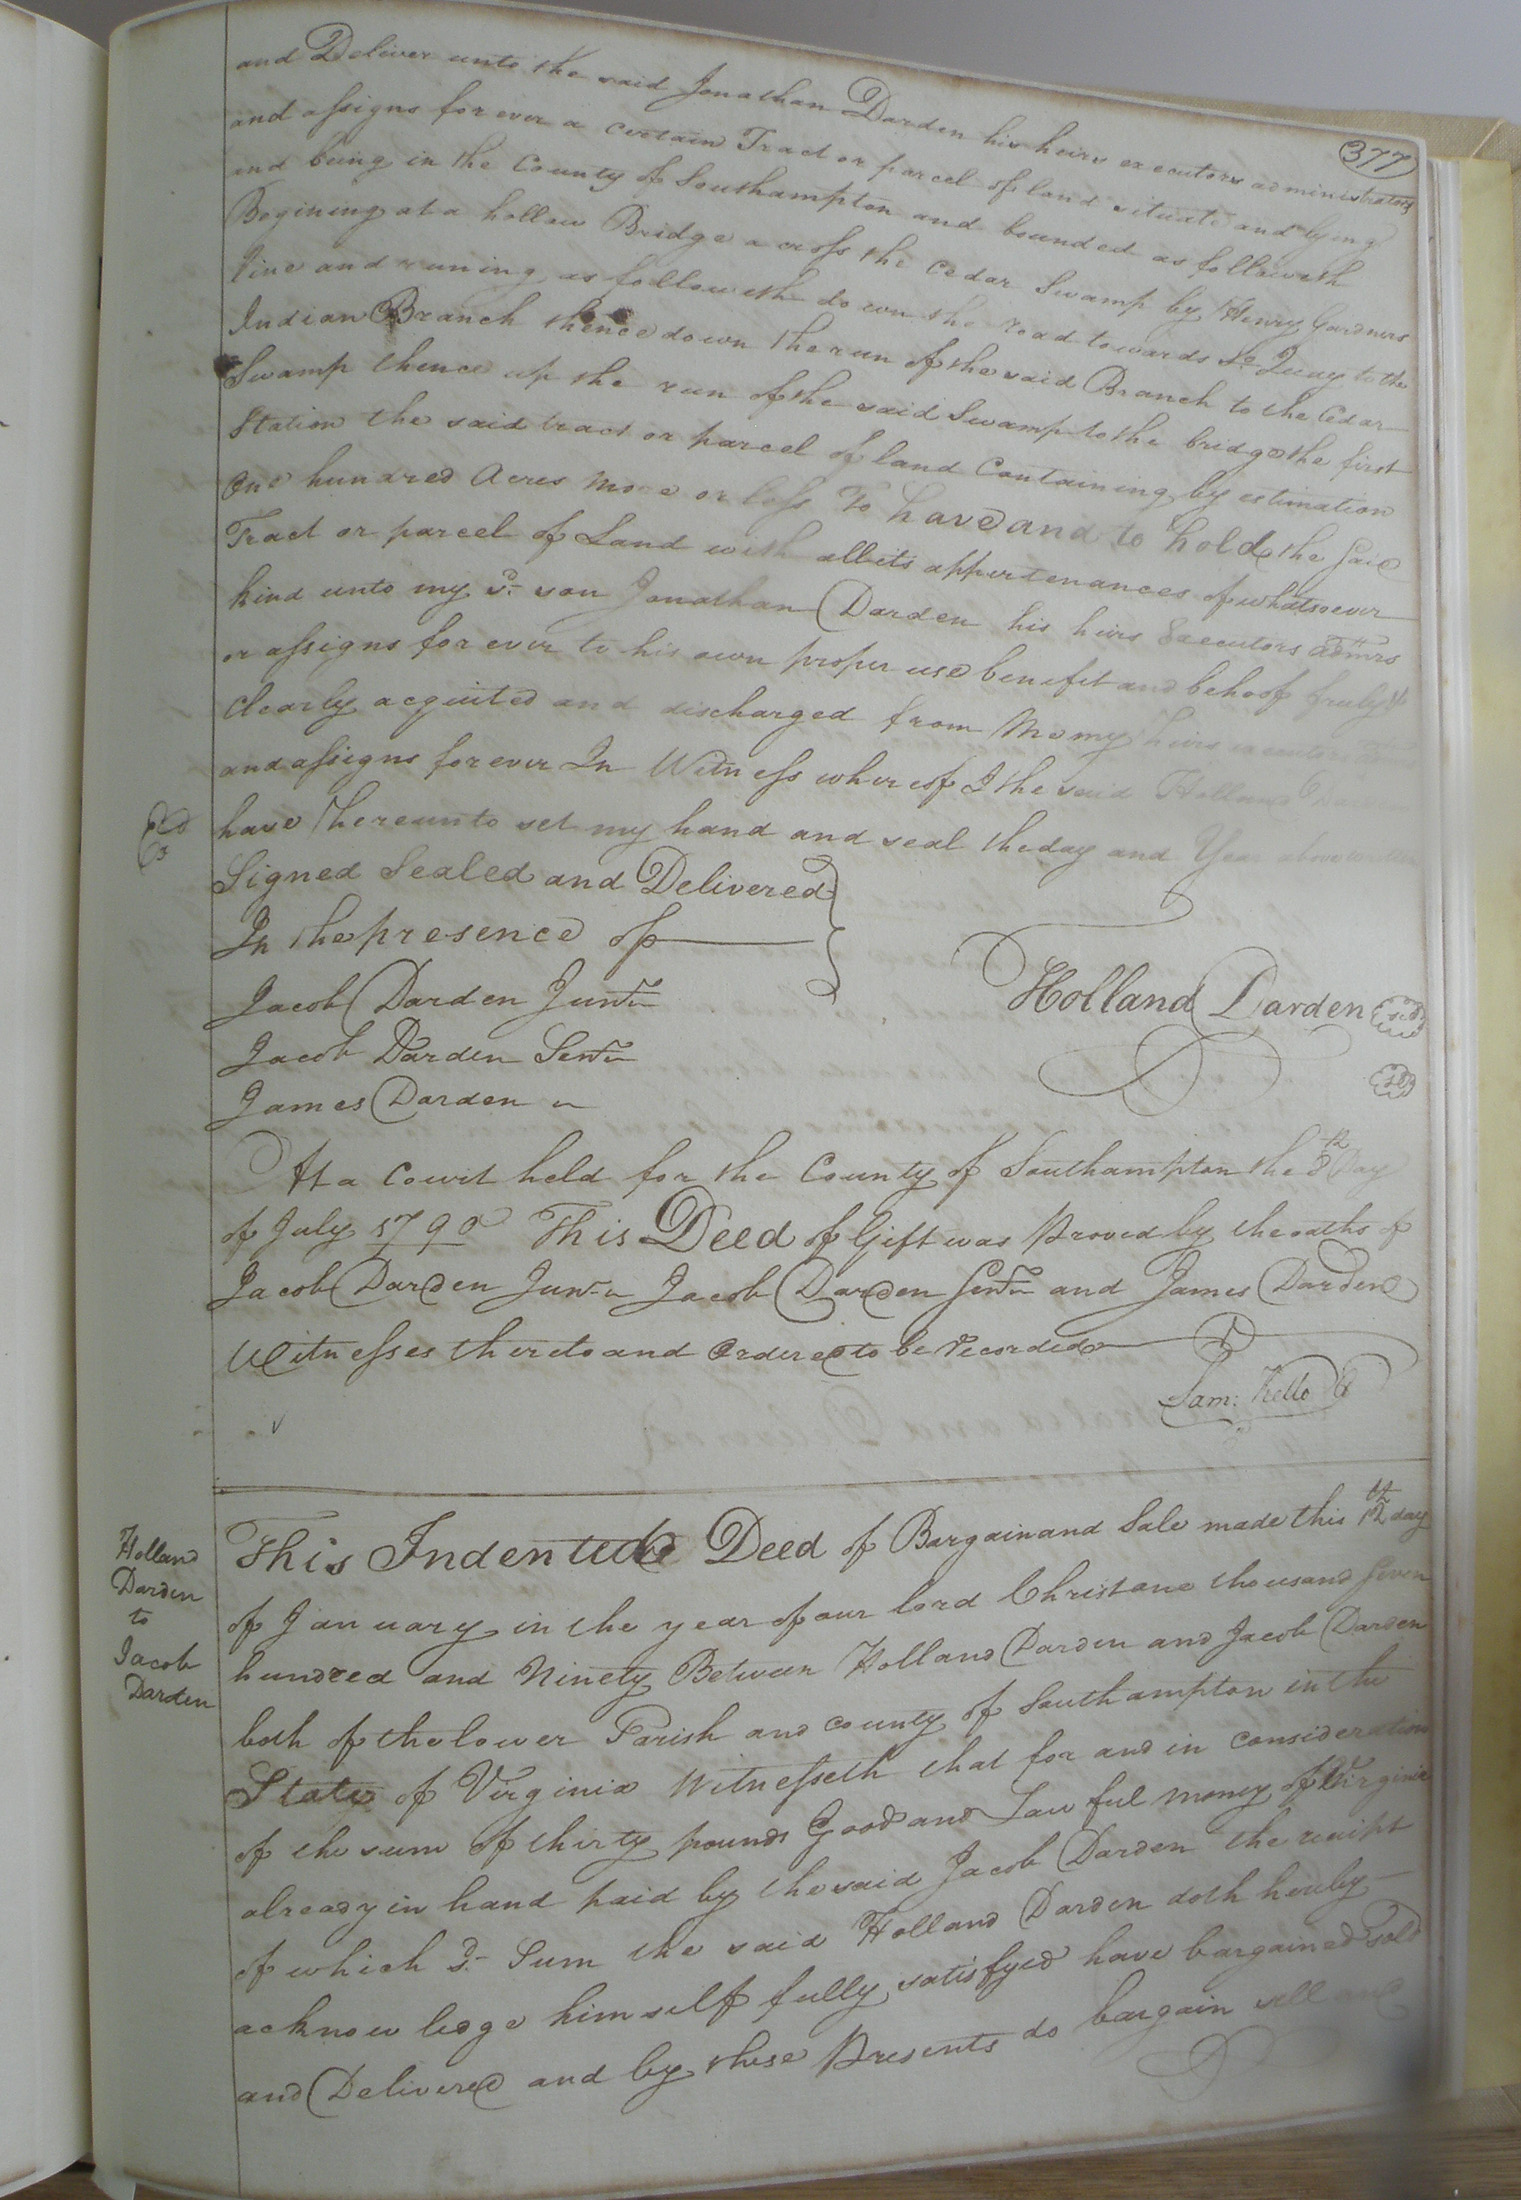 377
and Deliver unto the said Jonathan Darden his heirs executors administrators
and assigns for ever a certain Tract or parcel of land situate and lying
and being in the County of Southampton and bounded as followeth
Begining at a hollow Bridge a cross the Cedar Swamp by Henry Gardners
line and runing as followeth down the road towards So. Quay to the
Indian Branch thence down the run of the said Branch to the Cedar
Swamp thence up the run of the said Swamp to the bridge the first
Station the said tract or parcel of land Containing by estimation
One hundred Acres More or less To have and to hold the said
Tract or parcel of Land with all its appertenances of whatsoever
kind unto my sd. son Jonathan Darden his heirs Executors admrs
or assigns for ever to his own proper use benefit and behoof
Clearly acquited and discharged from Me my heirs executors
and assigns forever In Witness whereof I the said Holland
have hereunto set my hand and seal the day and Year above
Signed Sealed and Delivered
In the presence of
Jacob Darden Junr
Jacob Darden Senr
James Darden
Holland Darden
At a Court held for the County of Southampton the 8th Day
of July 1790 This Deed of Gift was Proved by the oaths of
Jacob Darden Junr Jacob Darden Senr and James Darden
Witnesses thereto and Ordered to be recorded
Sam: Kello
Holland
Darden
to
Jacob
Darden
This Indented Deed of Bargain and Sale made this 12th day
of January in the year of our lord Christ one thousand Seven
hundred and Ninety Between Holland Darden and Jacob Darden
both of the lower Parish and county of Southampton in the
State of Virginia Witnesseth that for and in consideration
of the sum of thirty pounds Good and Lawful money of Virginia
already in hand paid by the said Jacob Darden the receipt
of which sd. Sum the said Holland Darden doth hereby
acknowledge himself fully satisfyed have bargained Sold
and Delivered and by these Presents do bargain sell and